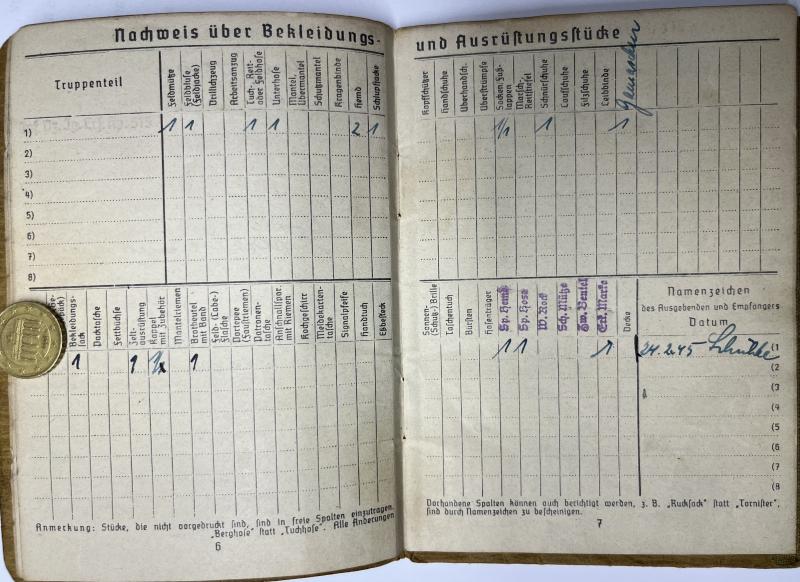 Nachweis über Bekleidungs-
Truppenteil
Feldmütze
Feldbluse (Feldjacke)
Drillichzeug
Arbeitsanzug
Tuch-, Reit- oder Feldhose
Unterhose
Mantel, Übermantel
Schutzmantel
Kragenbinde
Hemd
Schlupfjacke
1) 1 1 1 1 2 1
2)
3)
4)
5)
6)
7)
8)
Bekleidungssack
Packtasche
Fettbüchse
Zeltausrüstung
Koppel mit Zubehör
Mantelriemen
Brotbeutel mit Band
Feld- (Labe-) Flasche
Portepee (Faustriemen)
Patronentasche
Anschnallspor. mit Riemen
Kochgeschirr
Meldekartentasche
Signalpfeife
Handtuch
Eßbesteck
1 1 1
Anmerkung: Stücke, die nicht vorgedruckt sind, sind in freie Spalten einzutragen,
„Berghose" statt „Tuchhose". Alle Änderungen
6
und Ausrüstungsstücke
Kopfschützer
Handschuhe
Überhandsch.
Überstrümpfe
Socken, Fußlappen
Marsch-, Reitstiefel
Schnürschuhe
Laufschuhe
Filzschuhe
Leibbinde
1/1 1 1
Sonnen- (Schutz-) Brille
Taschentuch
Bürsten
Hosenträger
Sp. Hemd
Sp. Hose
W. Rock
Sch. Mütze
Gw. Beutel
Erk. Marke
Decke
Namenzeichen
des Ausgebenden und Empfangers
Datum
1 1 1 24.2.45 (1
(2
(3
(4
(5
(6
(7
(8
Vorhandene Spalten können auch berichtigt werden, z. B. „Rucksack" statt „Tornister",
sind durch Namenzeichen zu bescheinigen.
7